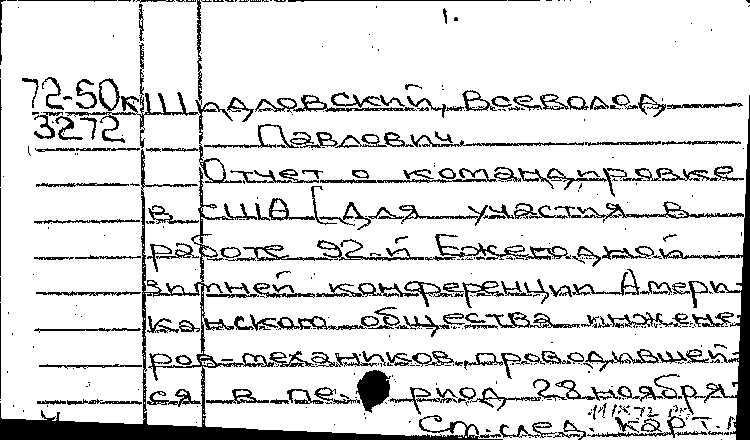 1.
72-50к Шидловский, Всеволод
3272 Павлович.
Отчет о командировке
в США [Для участия в
работе 92-й Ежегодной
зимней конференции Амери-
канского общества инжене-
ров-механиков, проводившей-
ся в пе. риод 28 ноября-
См. след. карт.